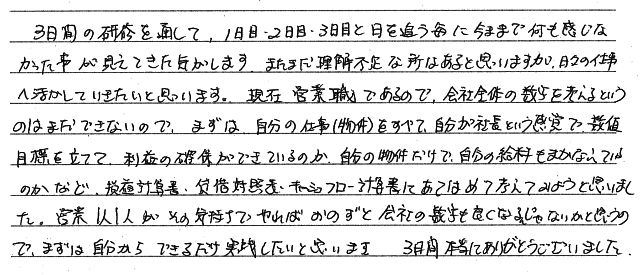 3日間の研修を通して、1日目・2日目・3日目と日を追う毎に今まで何も感じな
かった事が見えてきた気がします。まだまだ理解不足な所はあると思いますが、日々の仕事
へ活かしていきたいと思います。現在 営業職であるので、会社全体の数字を考えるという
のはまだできないので、まずは 自分の仕事(物件)をすべて、自分が社長という感覚で 数値
目標を立てて、利益の確保ができているのか、自分の物件だけで、自分の給料もまかなえている
のかなど、損益計算書、貸借対照表、キャッシュフロー計算書にあてはめて考えてみようと思いまし
た。営業 1人1人が その気持ちで やれば おのずと 会社の数字も良くなるんじゃないかと思うの
で、まずは 自分から できるだけ実践したいと思います。 3日間 本当にありがとうございました。